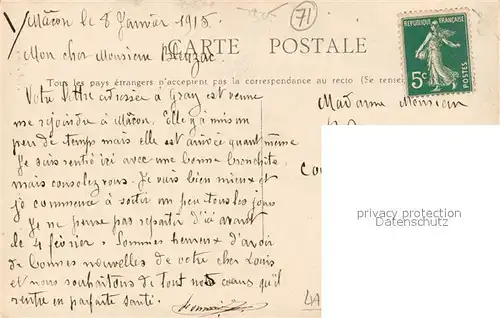 Mâcon le 8 Janvier 1915.
71
Mon cher Monsieur
CARTE POSTALE
RÉPUBLIQUE FRANÇAISE
5c
POSTES
Tous les pays étrangers n'acceptent pas la correspondance au recto (Se rensei
Votre lettre adressée à Gray est venue
me rejoindre à Mâcon. Elle a mis un
peu de temps mais elle est arrivée quand même
Je suis rentré ici avec une bonne bronchite,
mais consolez vous. Je vais bien mieux et
je commence à sortir un peu tous les jours
Je ne pense pas repartir d'ici avant
le 4 février. Sommes heureux d'avoir
de bonnes nouvelles de votre cher Louis
et nous souhaitons de tout nos coeurs qu'il
rentre en parfaite santé.
Madame Monsieur
privacy protection
Datenschutz